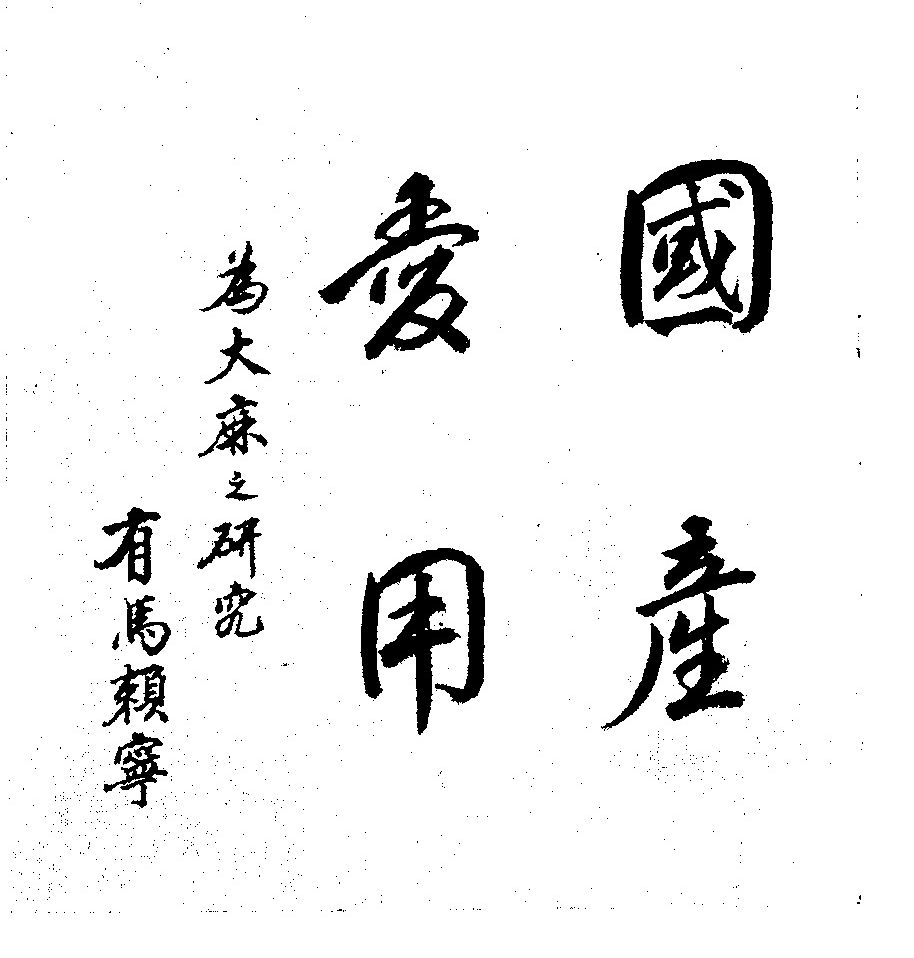 國產
愛用
為大麻之研究
有馬賴寧